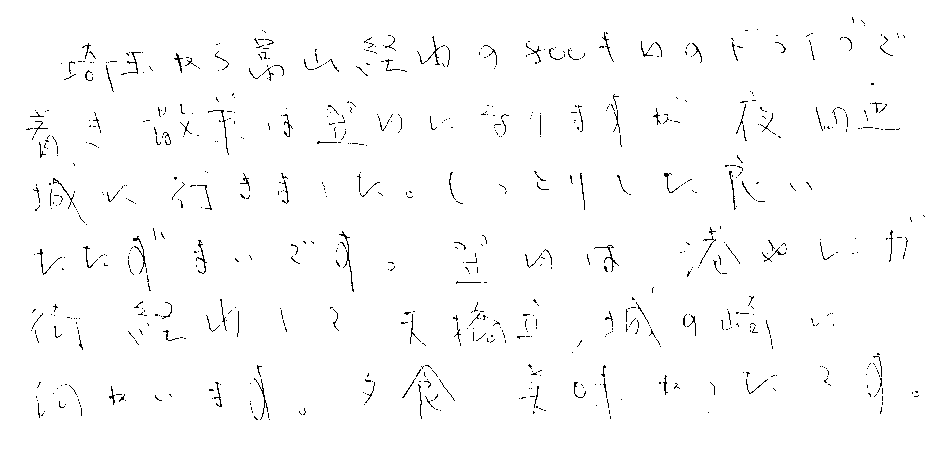 埼玉から富山経由の800キロのドライブで
着き 散策は翌日になりますが 夜の
城に行きました。しっとりした良い
たたずまいです。翌日は 港めぐり
街 経由して 天橋立、城の崎に
向かいます。夕食 美味かったです。